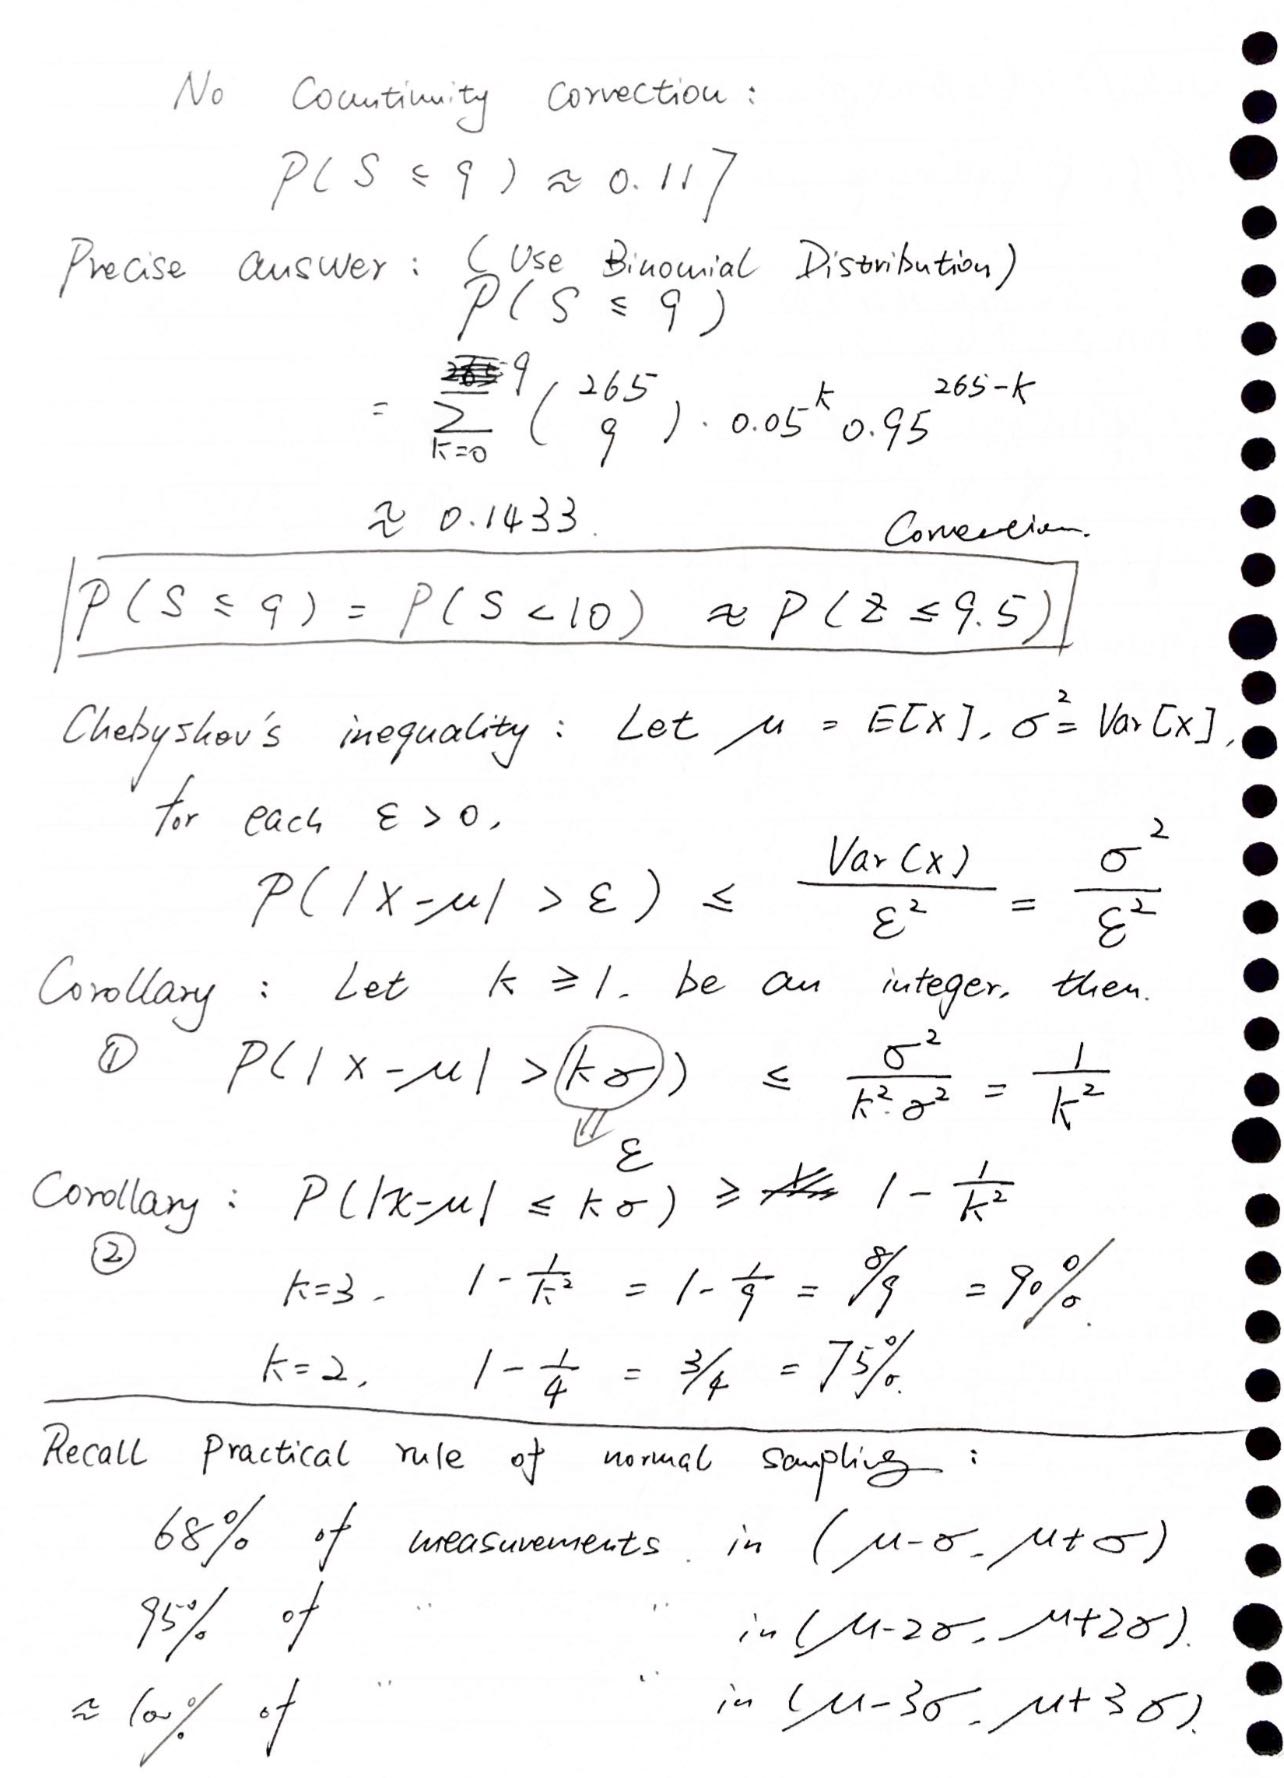 No Countinuity correction :
P(S ≤ 9) ≈ 0.117
Precise answer : (Use Binomial Distribution)
P(S ≤ 9)
= ∑_{k=0}^{9} (265 9) · 0.05^k 0.95^{265-k}
≈ 0.1433.
Correction.
P(S ≤ 9) = P(S < 10) ≈ P(Z ≤ 9.5)
Chebyshov's inequality : Let μ = E[X], σ² = Var[X],
for each ε > 0,
P(|X-μ| > ε) ≤ Var(X)/ε² = σ²/ε²
Corollary : Let k ≥ 1. be an integer, then.
① P(|X-μ| > kσ) ≤ σ²/k²·σ² = 1/k²
⇓ ε
Corollary : P(|X-μ| ≤ kσ) ≥ 1 - 1/k²
②
k=3. 1 - 1/k² = 1 - 1/9 = 8/9 = 90%.
k=2, 1 - 1/4 = 3/4 = 75%.
Recall Practical rule of normal sampling :
68% of measurements. in (μ-σ, μ+σ)
95% of " " in (μ-2σ, μ+2σ).
≈ 100% of " " in (μ-3σ, μ+3σ).